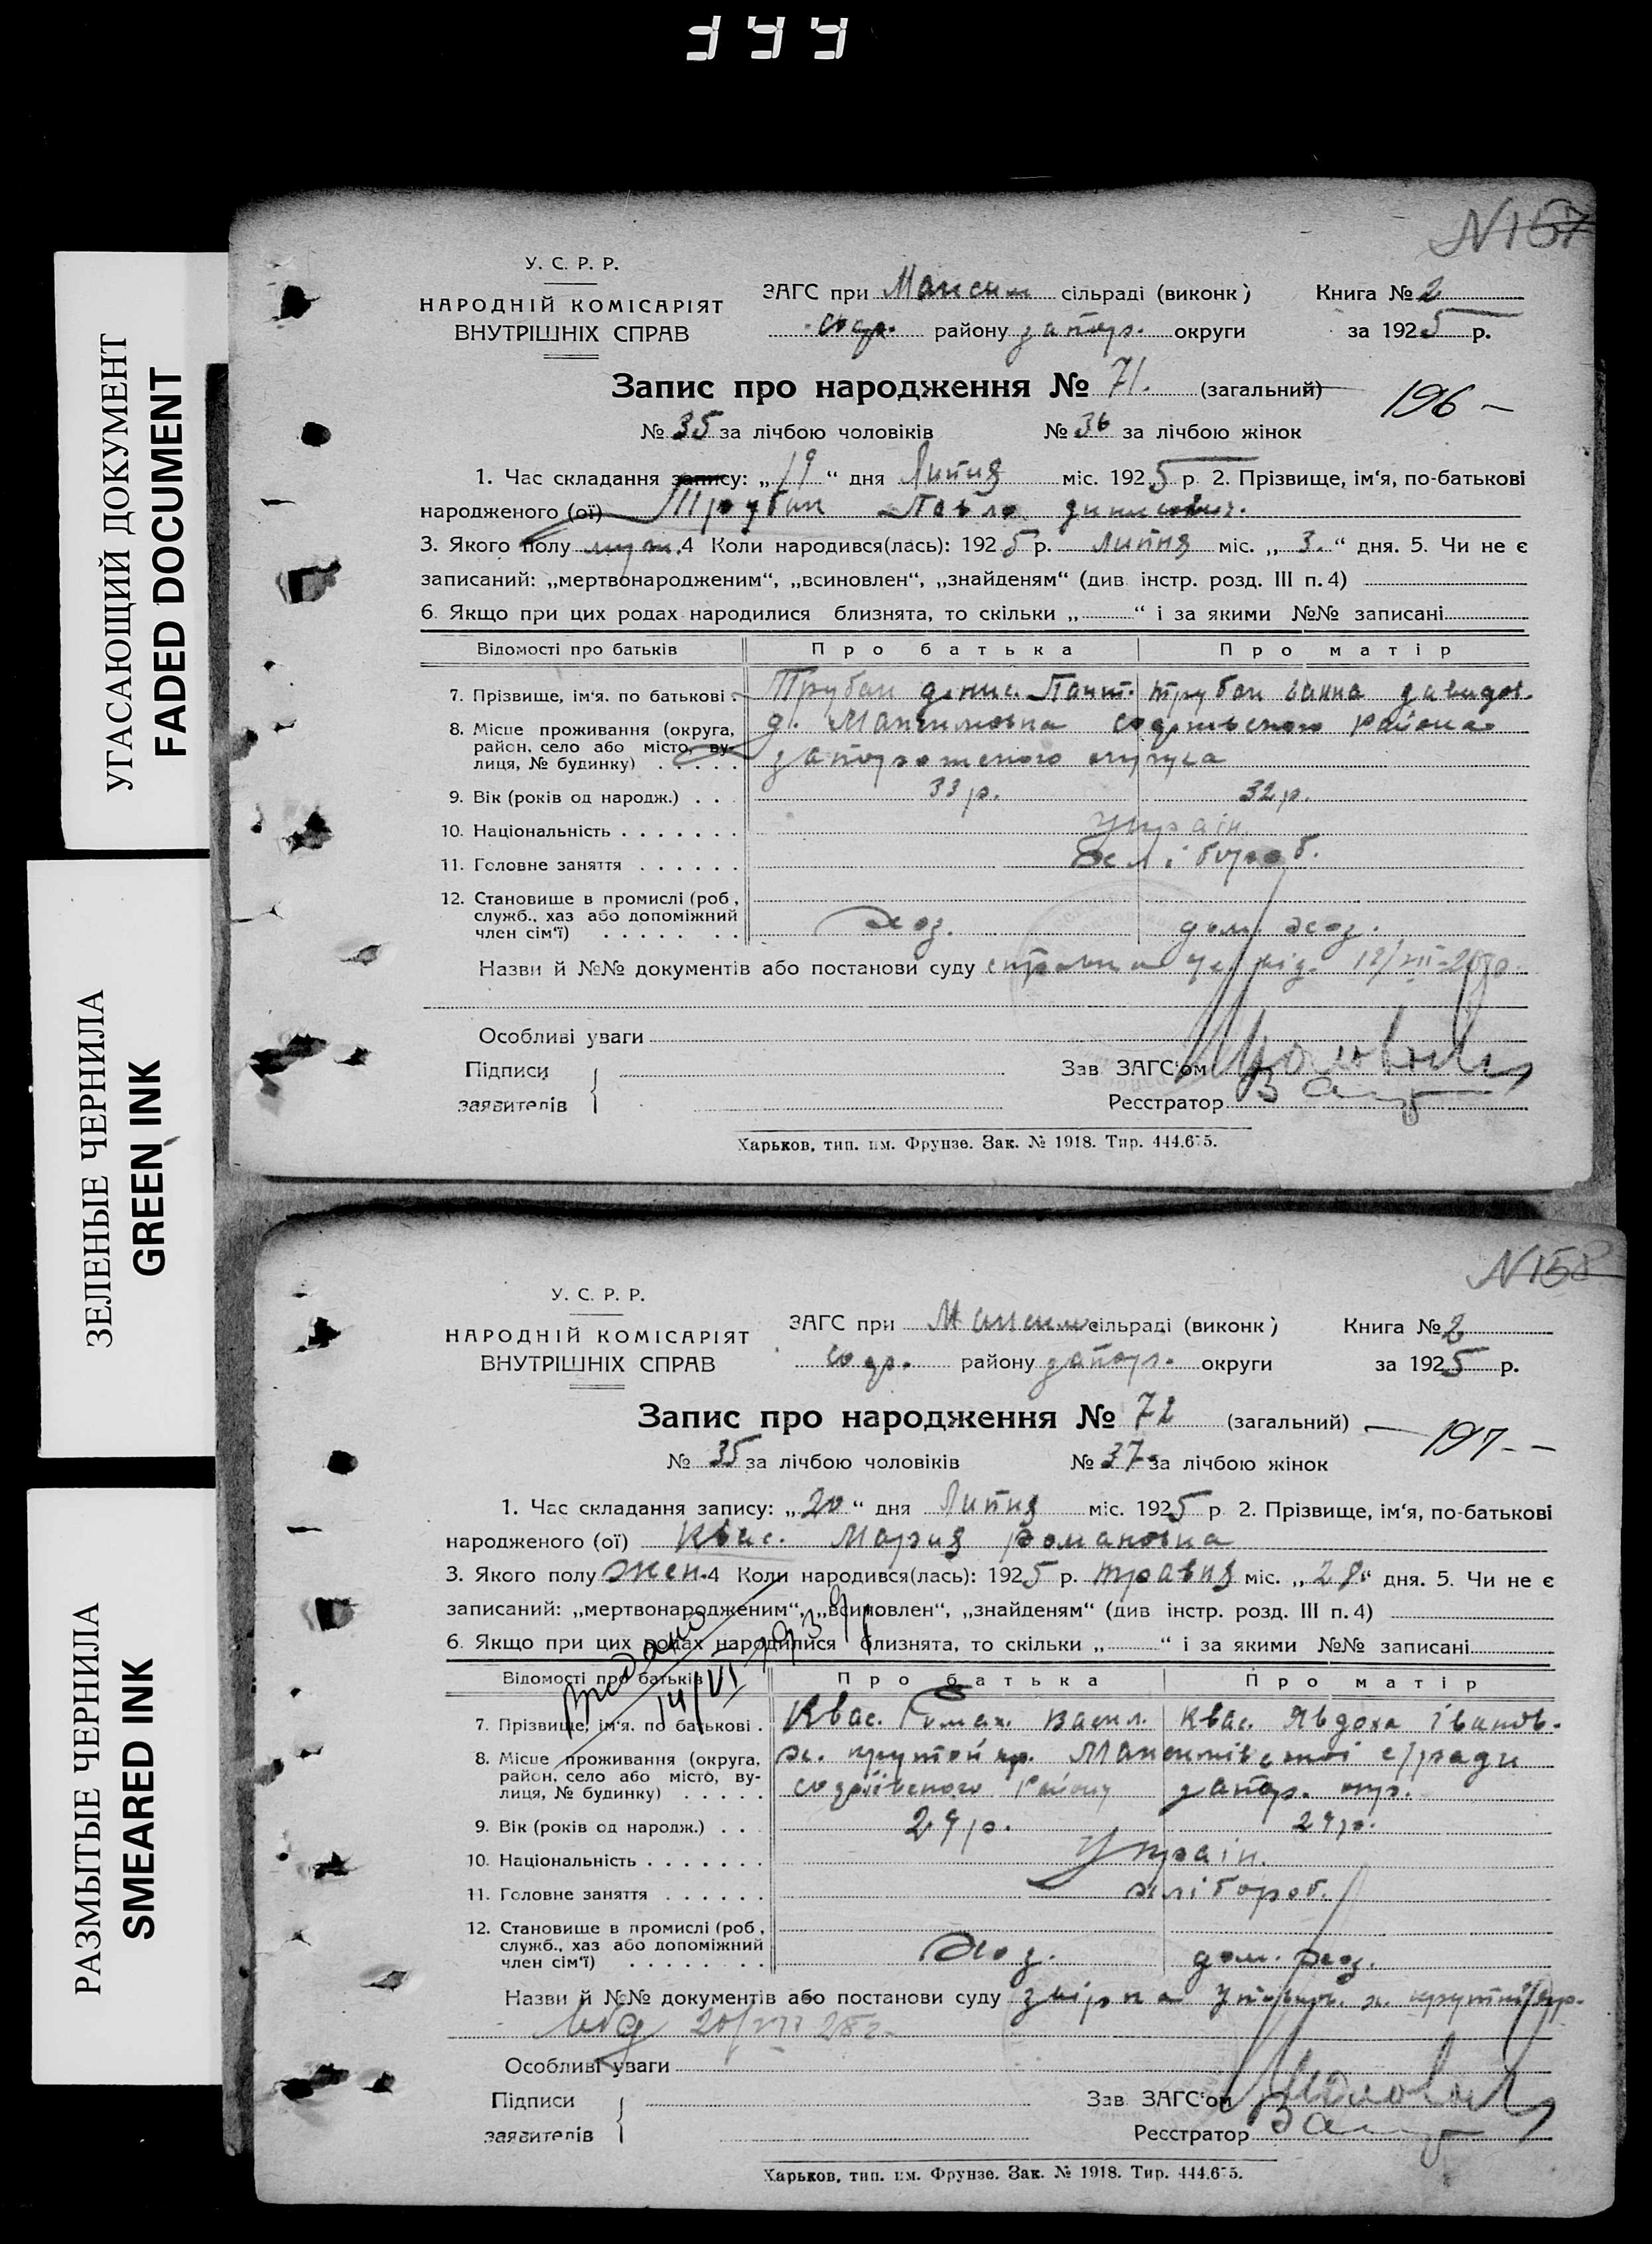 344
УГАСАЮЩИЙ ДОКУМЕНТ
FADED DOCUMENT
ЗЕЛЕНЫЕ ЧЕРНИЛА
GREEN INK
РАЗМЫТЫЕ ЧЕРНИЛА
SMEARED INK
N157
У. С. Р. Р.
НАРОДНІЙ КОМІСАРІЯТ
ВНУТРІШНІХ СПРАВ
ЗАГС при Максим сільраді (виконк) Книга № 2
району запор. округи за 1925 р.
Запис про народження № 71. (загальний) 196 –
№ 35 за лічбою чоловіків № 36 за лічбою жінок
1. Час складання запису: „19“ дня Липня міс. 1925 р. 2. Прізвище, ім‘я, по-батькові
народженого (ої) Трубан Павло
3. Якого полу муж. 4 Коли народився(лась): 1925 р. Липня міс. „3.“ дня. 5. Чи не є
записаний: „мертвонародженим“, „всиновлен“, „знайденям“ (див. інстр. розд. III п. 4)
6. Якщо при цих родах народилися близнята, то скільки „ “ і за якими №№ записані
Відомості про батьків Про батька Про матір
7. Прізвище, ім‘я. по батькові Трубан Пант. Трубан Ганна давидов.
8. Місце проживання (округа, район, село або місто, вулиця, № будинку) района
9. Вік (років од народж.) 33 р. 32 р.
10. Національність Украін.
11. Головне заняття хлібороб.
12. Становище в промислі (роб, служб., хаз або допоміжний член сім‘ї) хоз. дом. хоз.
Назви й №№ документів або постанови суду
Особливі уваги
Підписи Зав ЗАГС‘ом
заявителів Ресстратор
Харьков, тип. им. Фрунзе. Зак. № 1918. Тир. 444.675.
N158
У. С. Р. Р.
НАРОДНІЙ КОМІСАРІЯТ
ВНУТРІШНІХ СПРАВ
ЗАГС при Максим сільраді (виконк) Книга № 2
району запор. округи за 1925 р.
Запис про народження № 72 (загальний) – 197 – –
№ 35 за лічбою чоловіків № 37 за лічбою жінок
1. Час складання запису: „20“ дня Липня міс. 1925 р 2. Прізвище, ім‘я, по-батькові
народженого (ої) Квас. Мария Романовна
3. Якого полу жен. 4 Коли народився(лась): 1925 р. травня міс. „28“ дня. 5. Чи не є
записаний: „мертвонародженим“, „всиновлен“, „знайденям“ (див інстр. розд. III п. 4)
6. Якщо при цих родах народилися близнята, то скільки „ “ і за якими №№ записані
Видано
14/VI 1939
Відомості про батьків Про батька Про матір
7. Прізвище, ім‘я. по батькові Квас. Роман. Васил. Квас. Явдоха Іванов.
8. Місце проживання (округа, район, село або місто, вулиця, № будинку) х. Максимівської с/ради
району запор. окр.
9. Вік (років од народж.) 29 р. 29 р.
10. Національність Украін.
11. Головне заняття хлібороб.
12. Становище в промислі (роб, служб., хаз або допоміжний член сім‘ї) Хоз. дом. хоз.
Назви й №№ документів або постанови суду
Особливі уваги
Підписи Зав ЗАГС‘ом
заявителів Ресстратор
Харьков, тип. им. Фрунзе. Зак. № 1918. Тир. 444.675.